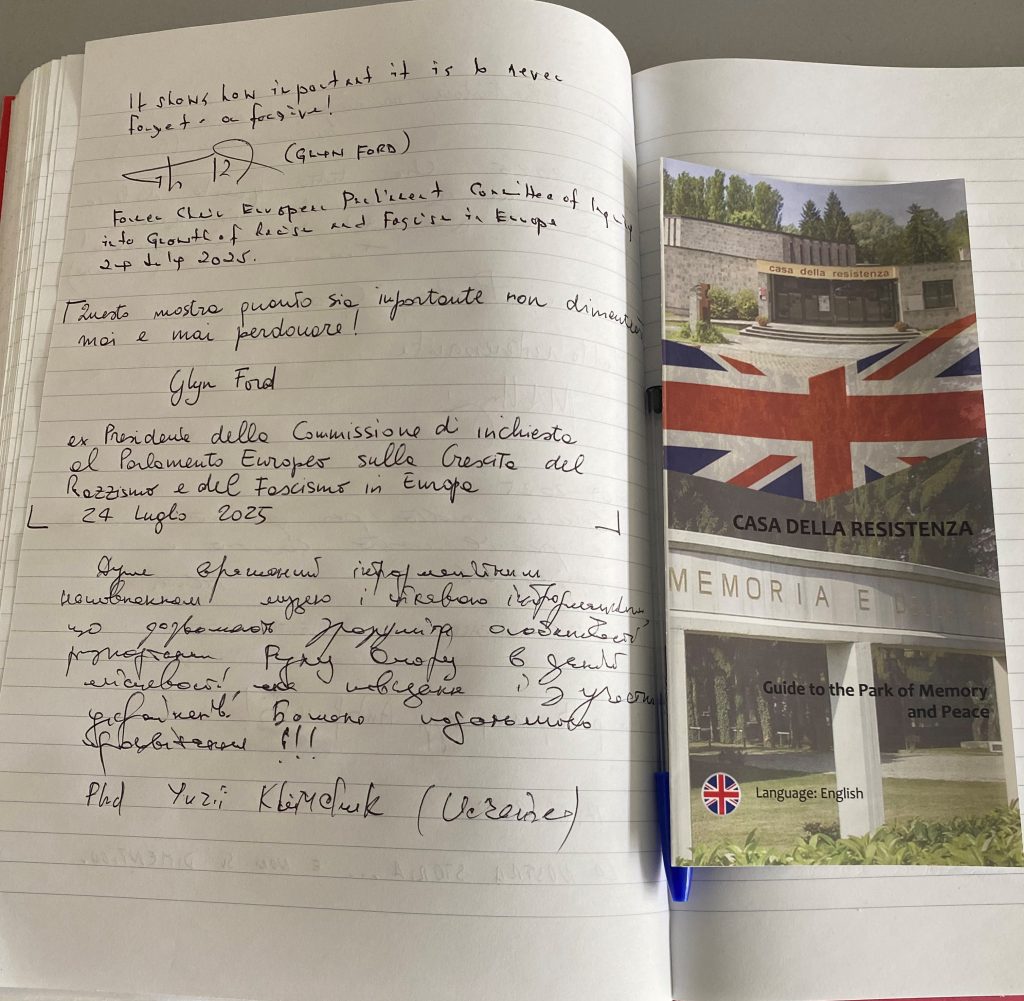 It shows how important it is to never
forget - or forgive!
(GLYN FORD)
Former Chair European Parliament Committee of Inquiry
into Growth of Racism and Fascism in Europe
24 July 2025.
Questo mostra quanto sia importante non dimenticare
mai e mai perdonare!
Glyn Ford
ex Presidente della Commissione di inchiesta
al Parlamento Europeo sulla Crescita del
Razzismo e del Fascismo in Europa
24 Luglio 2025
Дуже вражений
музею і
що дозволяють зрозуміти особливості
Руху Опору в
місцевості,
Бажаю подальшого
процвітання !!!
Phd Yurii Klymchuk (Ukraine)
casa della resistenza
CASA DELLA RESISTENZA
MEMORIA E
Guide to the Park of Memory
and Peace
Language: English